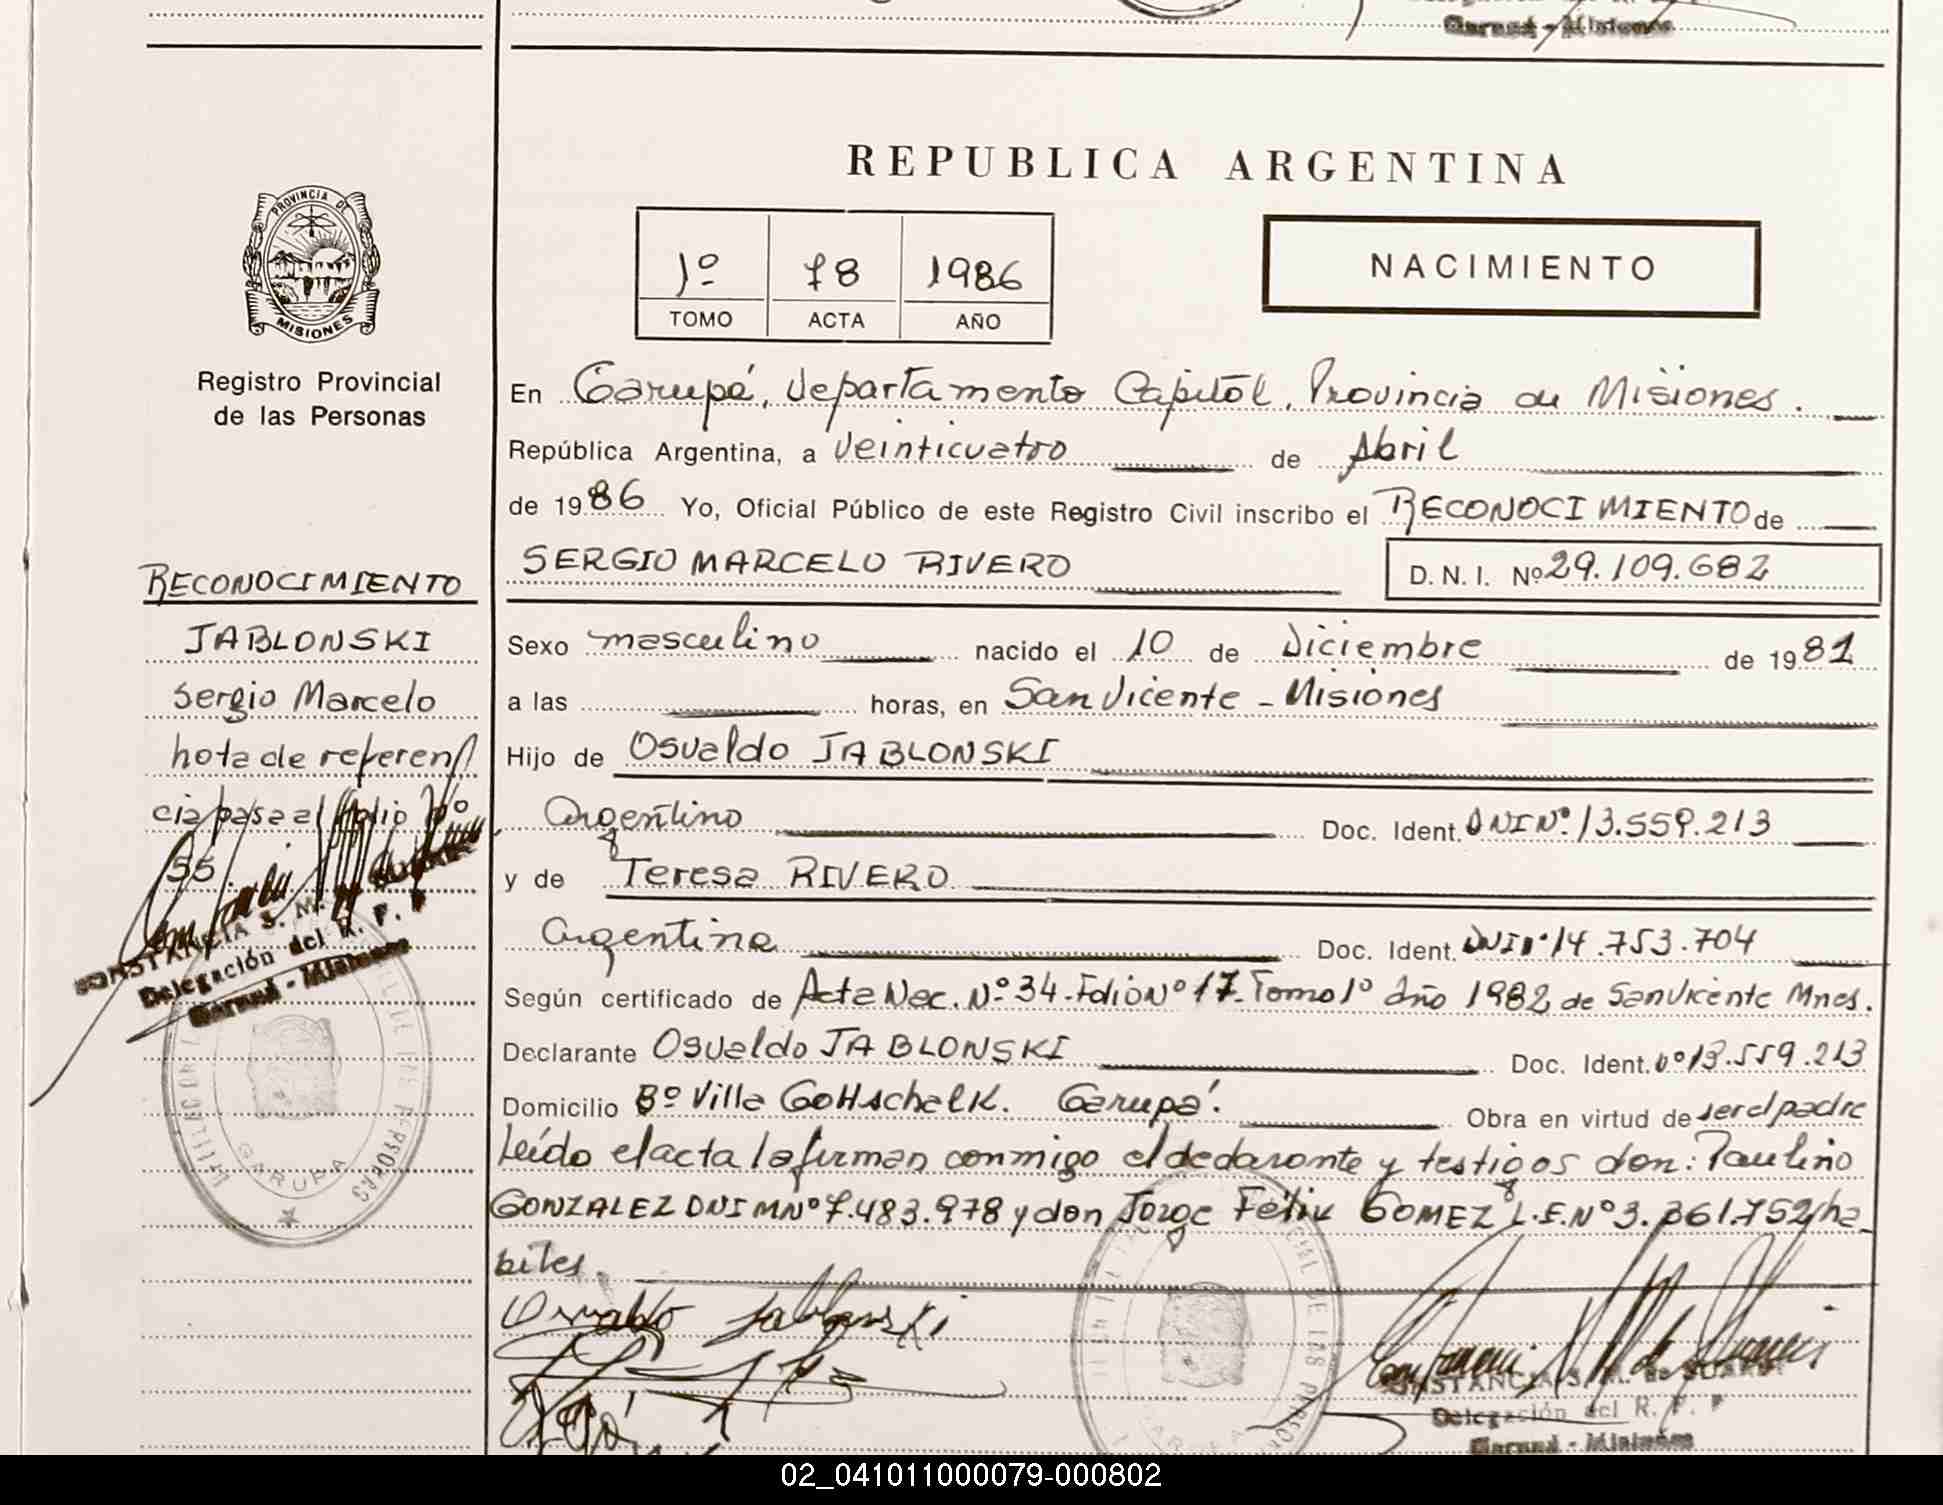 Garupá - Misiones
REPUBLICA ARGENTINA
PROVINCIA DE
MISIONES
Registro Provincial
de las Personas
1º 78 1986
TOMO ACTA AÑO
NACIMIENTO
En Garupá, departamento Capital, Provincia de Misiones.
República Argentina, a veinticuatro de Abril
de 1986 Yo, Oficial Público de este Registro Civil inscribo el RECONOCIMIENTO de
SERGIO MARCELO RIVERO D.N.I. Nº 29.109.682
RECONOCIMIENTO
JABLONSKI
Sergio Marcelo
nota de referen
cia pasa al folio Nº
55.
Sexo masculino nacido el 10 de Diciembre de 1981
a las horas, en San Vicente - Misiones
Hijo de Osvaldo JABLONSKI
argentino Doc. Ident. DNI Nº 13.559.213
y de Teresa RIVERO
argentina Doc. Ident. DNI Nº 14.753.704
Según certificado de Acta Nac. Nº 34 - Folio Nº 17 - Tomo 1º Año 1982 de San Vicente Mnes.
Declarante Osvaldo JABLONSKI Doc. Ident. Nº 13.559.213
Domicilio Bº Villa Gottschalk. Garupá. Obra en virtud de ser el padre
Leído el acta la firman conmigo el declarante y testigos don: Paulino
GONZALEZ DNI MNº 7.483.978 y don Jorge Félix GOMEZ L.E. Nº 3.361.752 ha
biles
Osvaldo Jablonski
CONSTANCIA S. M. de SUAREZ
Delegación del R. P. P
Garupá - Misiones
CONSTANCIA S. M.
Delegación del R. P. P
Garupá - Misiones
GARUPA
02_041011000079-000802